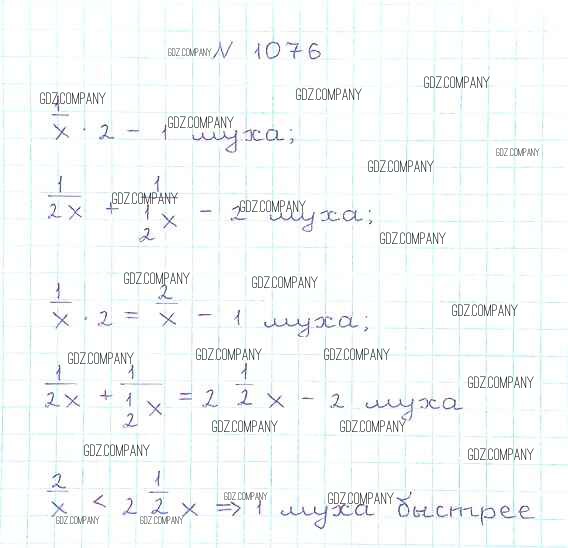 GDZ.COMPANY N 1076
GDZ.COMPANY GDZ.COMPANY GDZ.COMPANY
1/x · 2 - 1 муха; GDZ.COMPANY
GDZ.COMPANY GDZ.COMPANY
1/2x + 1/(1/2 x) - 2 муха; GDZ.COMPANY GDZ.COMPANY
GDZ.COMPANY
GDZ.COMPANY GDZ.COMPANY
1/x · 2 = 2/x - 1 муха; GDZ.COMPANY
GDZ.COMPANY GDZ.COMPANY GDZ.COMPANY
1/2x + 1/(1/2 x) = 2 1/2 x - 2 муха GDZ.COMPANY
GDZ.COMPANY GDZ.COMPANY
GDZ.COMPANY GDZ.COMPANY
2/x < 2 1/2 x => 1 муха быстрее GDZ.COMPANY GDZ.COMPANY
GDZ.COMPANY GDZ.COMPANY